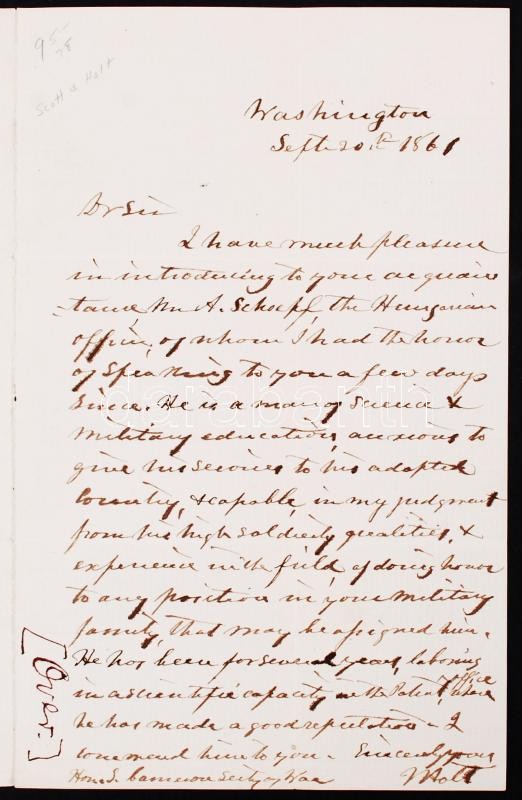 95-
75
Scott & Holt
Washington
Sept. 20.th 1861
Dr Sir
I have much pleasure
in introducing to your acquain
-tance, Mr A. Schoepf the Hungarian
officer, of whom I had the honor
of speaking to you a few days
since. He is a man of science &
military education, anxious to
give his services to his adopted
Country, & capable, in my judgment
from his high soldierly qualities, &
experience in the field, of doing honor
to any position in your military
family, that may be assigned him.
He has been for several years, laboring
in a scientific capacity in the Patent office, where
he has made a good reputation - I
commend him to you - Sincerely yours
Hon. S. Cameron Secty of War J Holt
[Over.]
darabanth